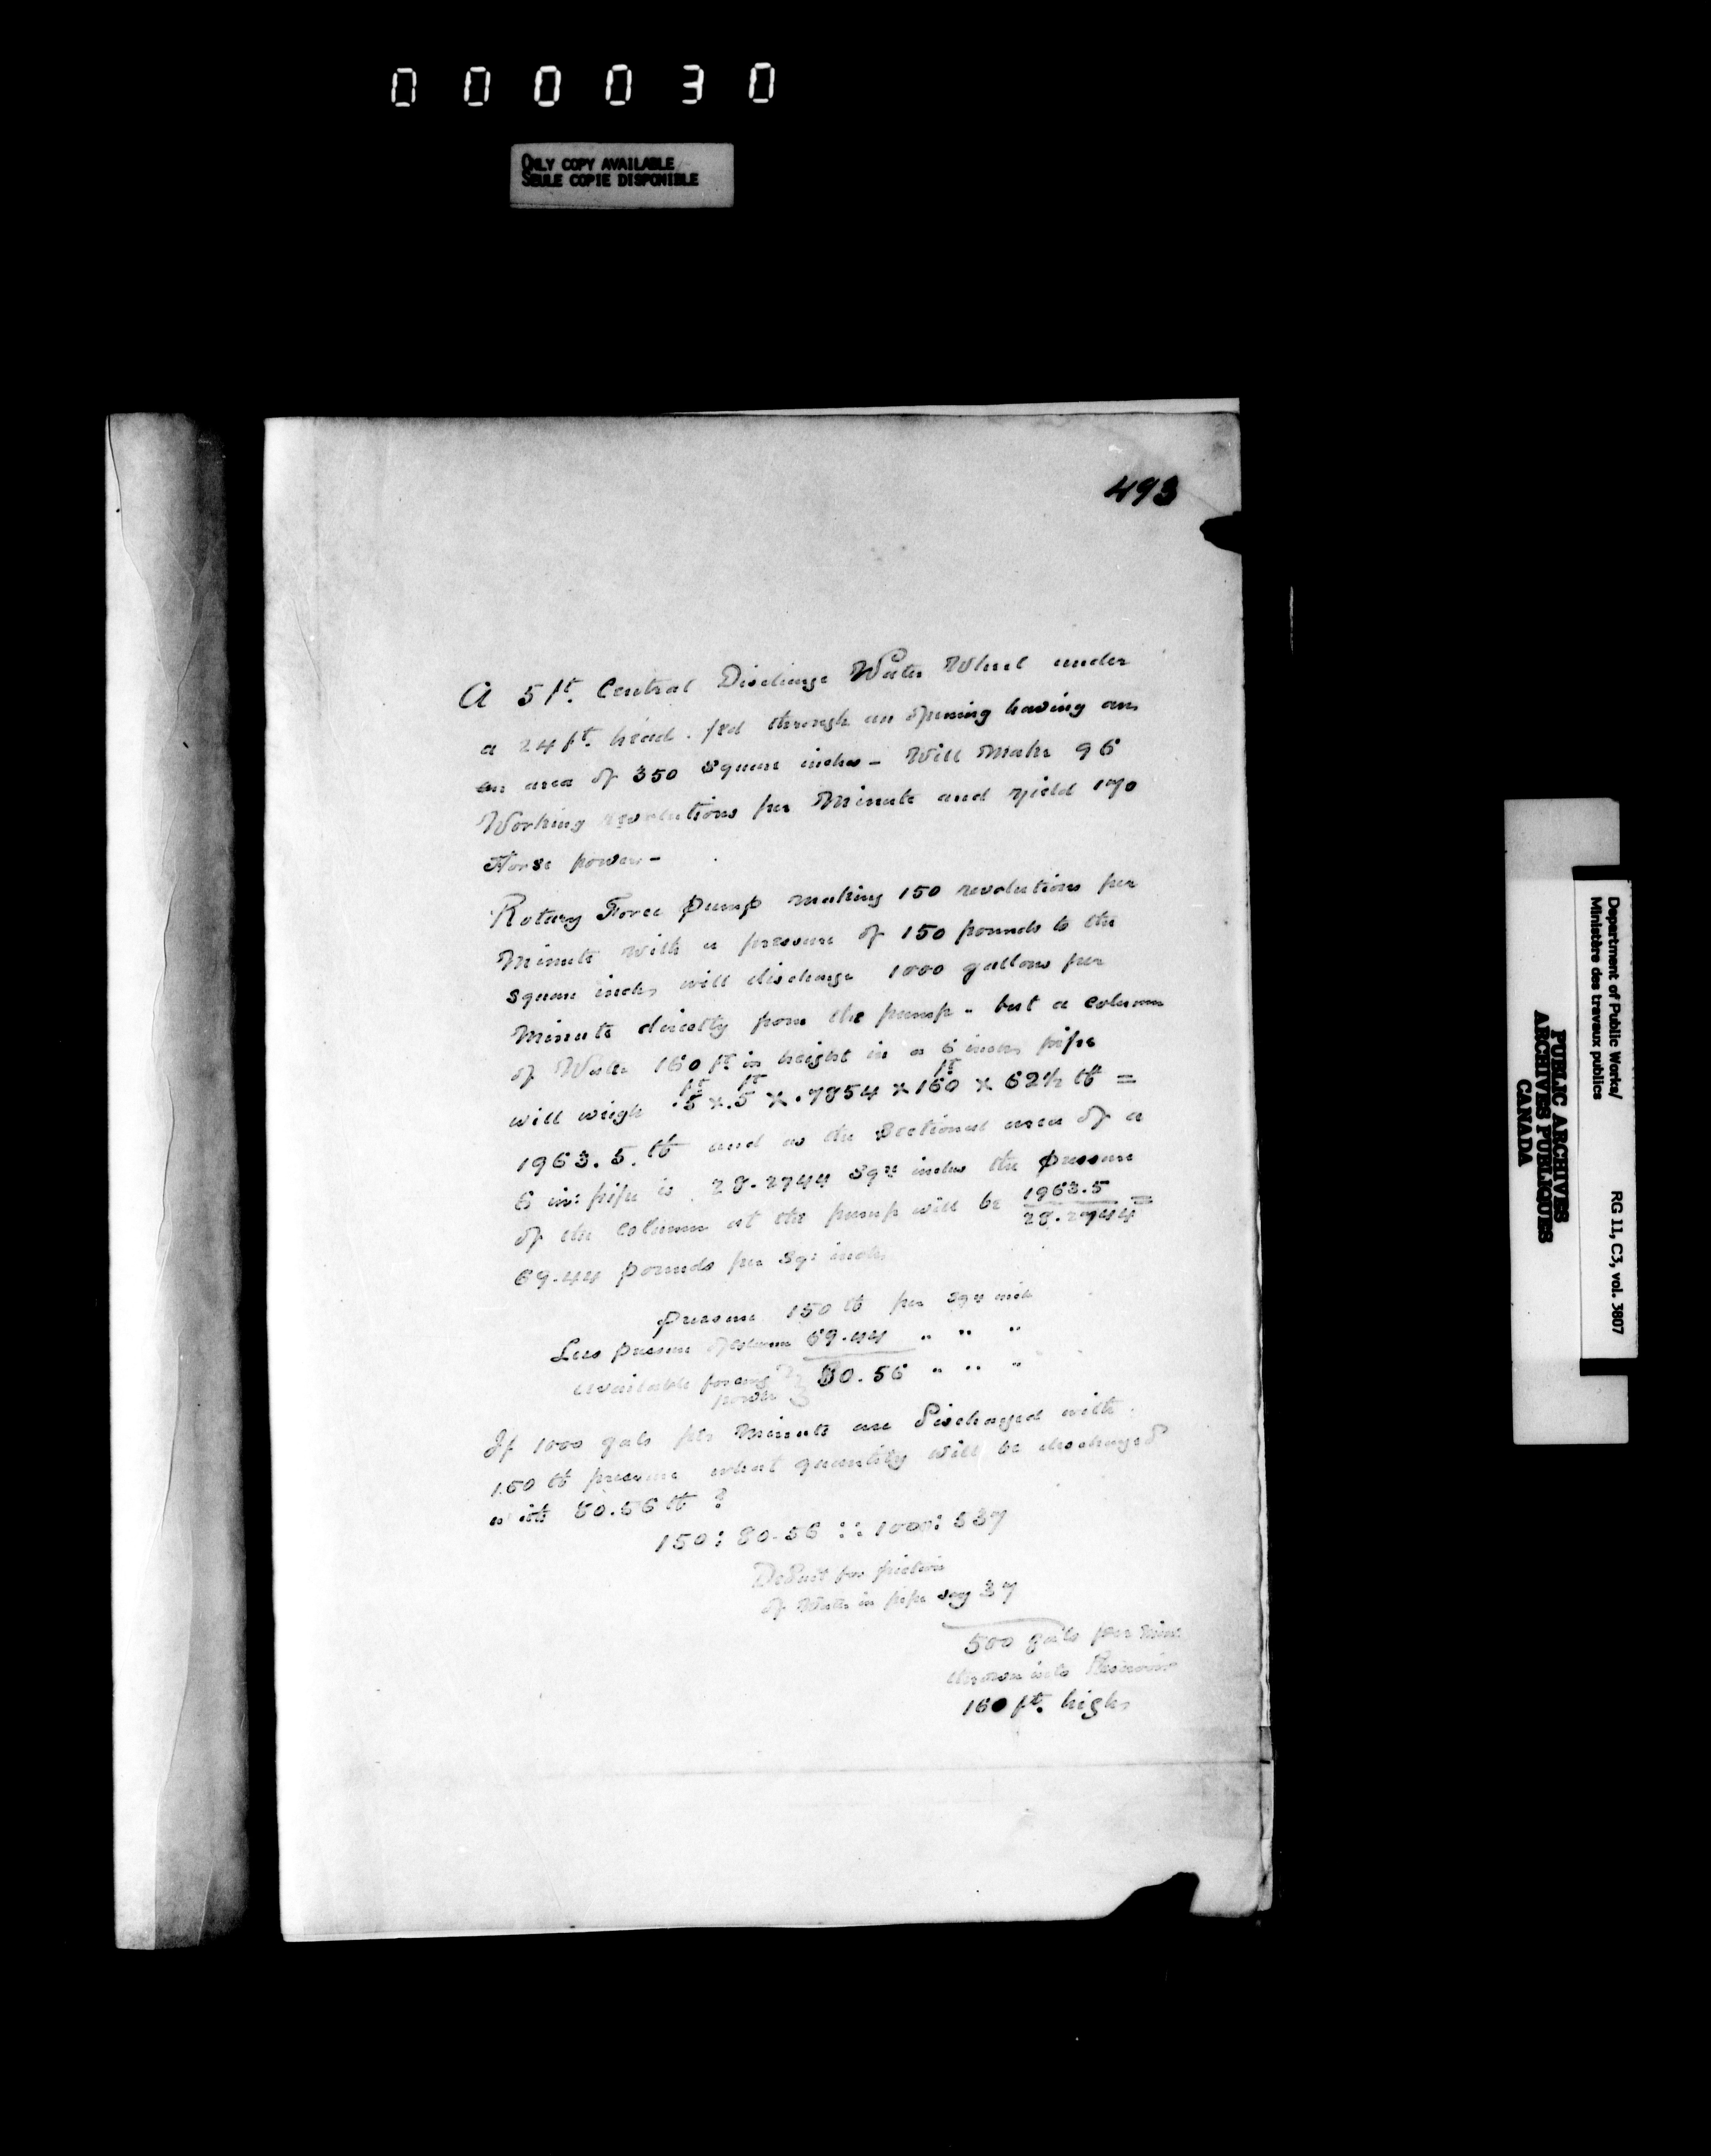 000030
ONLY COPY AVAILABLE
SEULE COPIE DISPONIBLE
493
A 5 ft. Central Discharge Water Wheel under
a 24 ft. head. fed through an opening having an
an area of 350 square inches - Will Make 96
Working revolutions per Minute and yield 170
Horse power -
Rotary Force Pump making 150 revolutions per
Minute with a pressure of 150 pounds to the
square inch, will discharge 1000 gallons per
Minute directly from the pump - but a column
of Water 160 ft in height in a 6 inch pipe
will weigh .5 ft × .5 ft × .7854 × 160 ft × 62½ lb =
1963.5. lb and as the sectional area of a
6 in: pipe is 28.2744 Sqre inches the pressure
of the column at the pump will be 1963.5 / 28.2744 =
69.44 pounds per Sq: inch
Pressure 150 lb per Sqre inch
Less pressure of column 69.44 " " "
available forcing power } 80.56 " " "
If 1000 gals per Minute are Discharged with
150 lb pressure what quantity will be discharged
with 80.56 lb ?
150 : 80.56 :: 1000 : 537
Deduct for friction
of Water in pipe say 37
500 gals per Min:
thrown into Reservoir
160 ft. high
Department of Public Works/
Ministère des travaux publics
RG 11, C3, vol. 3807
PUBLIC ARCHIVES
ARCHIVES PUBLIQUES
CANADA